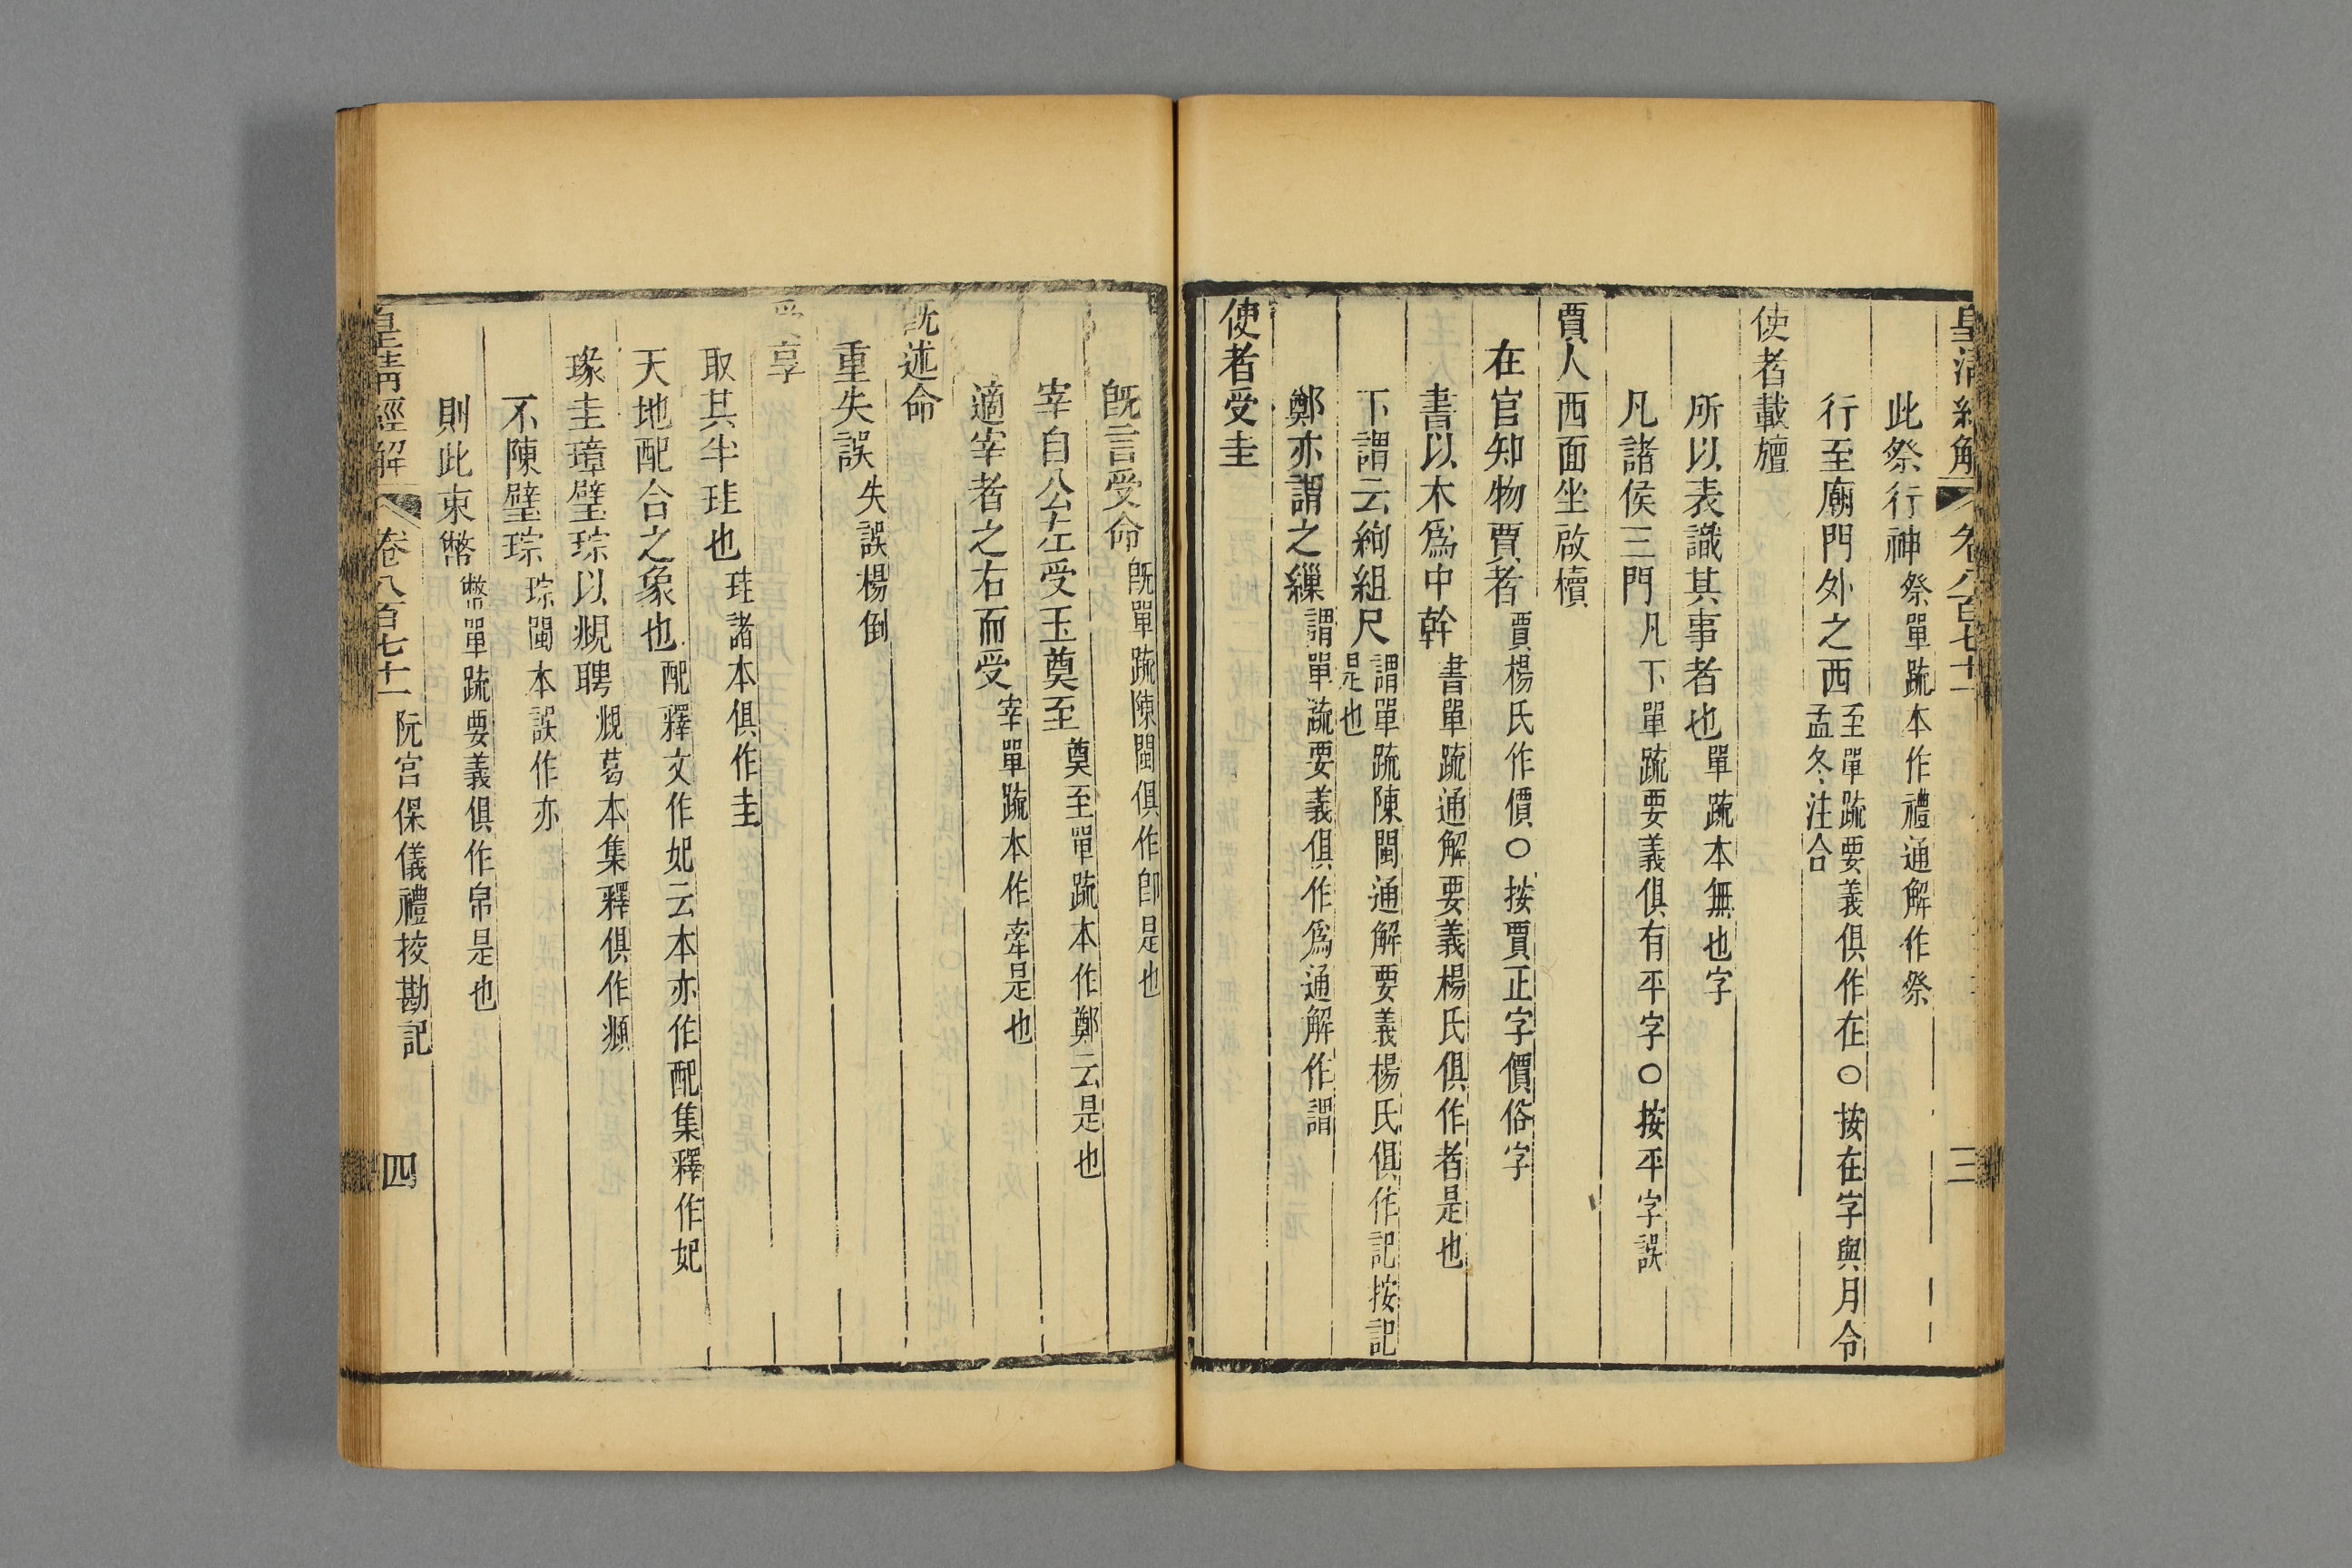 皇清經解 卷八百七十一 三
此祭行神祭單疏本作禮通解作祭
行至廟門外之西至單疏要義俱作在○按在字與月令孟冬注合
使者載旜
所以表識其事者也單疏本無也字
凡諸侯三門凡下單疏要義俱有平字○按平字誤
賈人西面坐啟櫝
在官知物賈者賈楊氏作價○按賈正字價俗字
書以木爲中幹書單疏通解要義楊氏俱作者是也
下謂云絢組尺謂單疏陳閩通解要義楊氏俱作記按記是也
鄭亦謂之繅謂單疏要義俱作爲通解作謂
使者受圭
旣言受命旣單疏陳閩俱作卽是也
宰自公左受玉奠至奠至單疏本作鄭云是也
適宰者之右而受宰單疏本作牽是也
旣述命
重失誤失誤楊倒
受享
取其半珪也珪諸本俱作圭
天地配合之象也配釋文作妃云本亦作配集釋作妃
瑑圭璋璧琮以覜聘覜葛本集釋俱作頫
不陳璧琮琮閩本誤作亦
則此束幣幣單疏要義俱作帛是也
皇清經解 卷八百七十一 阮宮保儀禮挍勘記 四